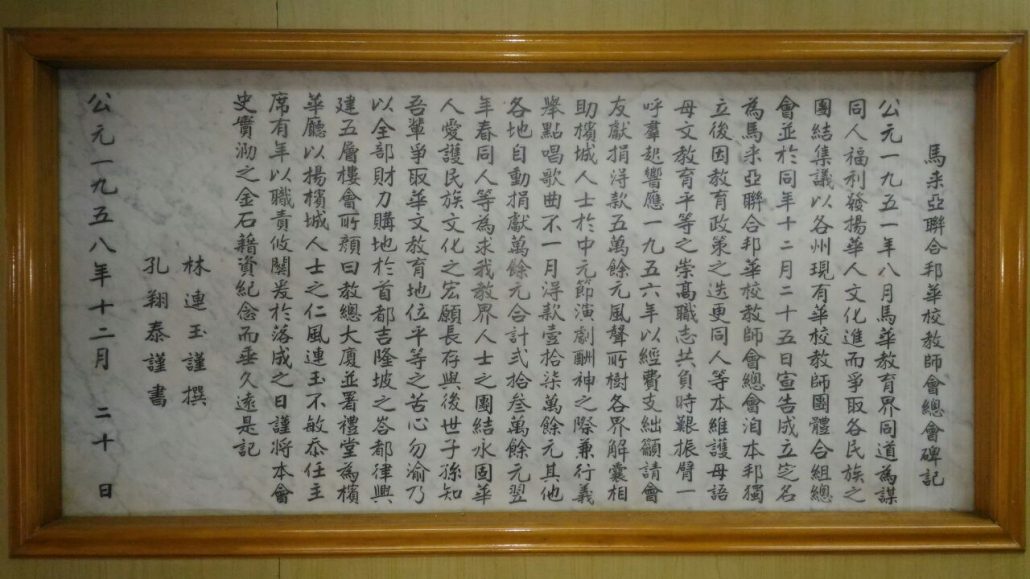 馬来亞聯合邦華校教師會總會碑記
公元一九五一年八月馬華教育界同道為謀
同人福利發揚華人文化進而爭取各民族之
團結集議以各州現有華校教師團體合組總
會並於同年十二月二十五日宣告成立定名
為馬来亞聯合邦華校教師會總會洎本邦獨
立後因教育政策之迭更同人等本維護母語
母文教育平等之崇高職志共負時艱振臂一
呼羣起響應一九五六年以經費支絀籲請會
友獻捐淂款五萬餘元風聲所樹各界解囊相
助檳城人士於中元節演劇酬神之際兼行義
舉點唱歌曲不一月淂款壹拾柒萬餘元其他
各地自動捐獻萬餘元合計弍拾叁萬餘元翌
年春同人等為求我教界人士之團結永固華
人愛護民族文化之宏願長存與後世子孫知
吾輩爭取華文教育地位平等之苦心勿渝乃
以全部財力購地於首都吉隆坡之峇都律興
建五層樓會所顏曰教總大廈並署禮堂為檳
華廳以揚檳城人士之仁風連玉不敏忝任主
席有年以職責攸關爰於落成之日謹將本會
史實泐之金石藉資紀念而垂久遠是記
林連玉謹撰
孔翔泰謹書
公元一九五八年十二月 二十日